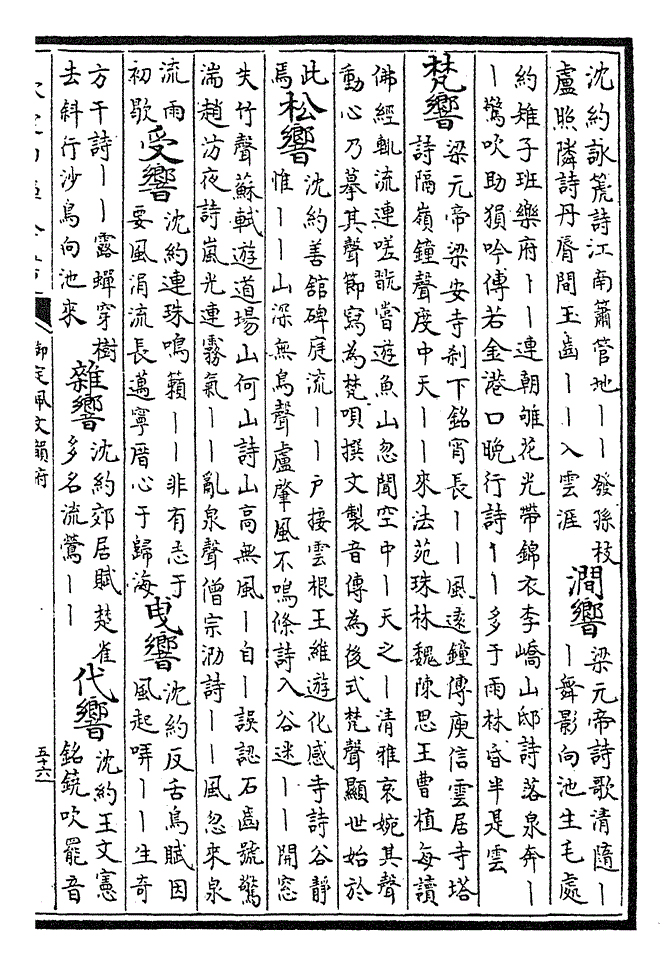 沈約詠箎詩江南簫管地丨丨發孫枝
盧照隣詩丹脣間玉齒丨丨入雲涯
澗響
梁元帝詩歌清隨丨
丨舞影向池生毛處
約雉子班樂府丨丨連朝雊花光帶錦衣李嶠山邸詩落泉奔丨
丨驚吹助猨吟傅若金港口晚行詩丨丨多于雨林昏半是雲
梵響
梁元帝梁安寺刹下銘宵長丨丨風遠鐘傳庾信雲居寺塔
詩隔嶺鐘聲度中天丨丨來法苑珠林魏陳思王曹植每讀
佛經輒流連嗟翫嘗遊魚山忽聞空中丨天之丨清雅哀婉其聲
動心乃摹其聲節寫為梵唄撰文製音傳為後式梵聲顯世始於
此
焉
松響
沈約善舘碑庭流丨丨戸接雲根王維遊化感寺詩谷静
惟丨丨山深無鳥聲盧肇風不鳴條詩入谷迷丨丨開窓
失竹聲蘇軾遊道場山何山詩山高無風丨自丨誤認石齒號驚
湍趙汸夜詩嵐光連霧氣丨丨亂泉聲僧宗泐詩丨丨風忽來泉
流雨
初歇
受響
沈約連珠鳴籟丨丨非有志于
要風涓流長邁寧厝心于歸海
曳響
沈約反舌鳥賦因
風起哢丨丨生奇
方干詩丨丨露蟬穿樹
去斜行沙鳥向池來
雜響
沈約郊居賦楚雀
多名流鶯丨丨
代響
沈約王文憲
銘鐃吹罷音
御定佩文韻府
五十六